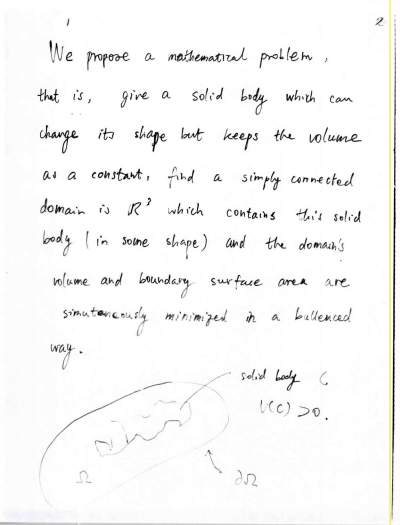 1 2
We propose a mathematical problem,
that is, give a solid body which can
change its shape but keeps the volume
as a constant, find a simply connected
domain is R³ which contains this solid
body (in some shape) and the domain's
volume and boundary surface area are
simutaneously minimized in a ballenced
way.
solid body C.
V(C) > 0.
Ω
∂Ω